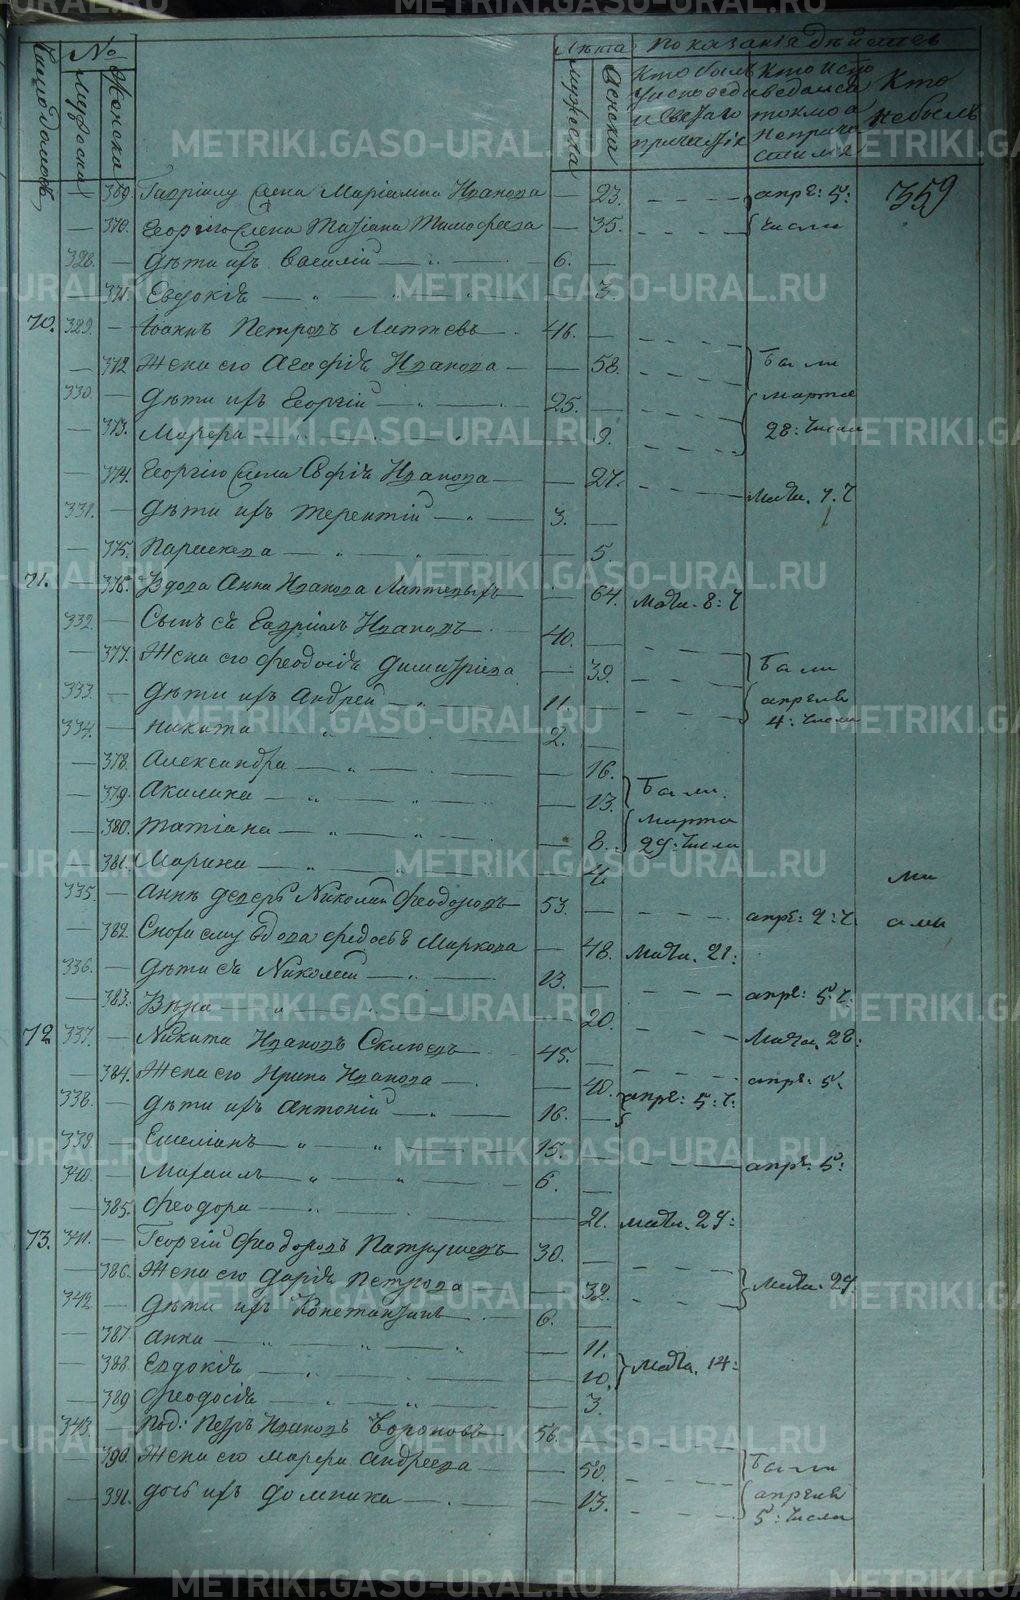 Число домовъ
№
Мужеска
Женска
Лѣта
Мужеска
Женска
Показанія дѣйствъ
Кто былъ у исповеди и Святаго причастія
Кто исповедался токмо а не причастился
Кто небылъ
369. Гавріилу Жена Маріамна Иванова — 23. апре: 5:
359
370. Георгію Жена Татіана Тимофеева — 35. числа
328. — Дѣти ихъ Василій — 6. —
371. Евдокія — 3.
70. 329. — Іоаннъ Петровъ Лаптевъ 46. —
372 Жена его Агафія Иванова — 58. Были
330. — Дѣти ихъ Георгій — 25. — марта
373. Марфа — 9. 28: числа
374. Георгію Жена Иванова — 27. мар. 7. ч
331. — Дѣти ихъ Терентій — 3. —
375. Параскева — 5
71. — 376. Вдова Анна Иванова Лаптевыхъ — 64. мар. 8: ч
332. — Сынъ ея Гавріилъ Ивановъ 40. —
377. Жена его Феодосія Димитріева — 39. Были
333. — Дѣти ихъ Андрей — 11 — апреля
334. — Никита 2. — 4: числа
378. Александра — 16.
379. Акилина — 13. Были
380. Татіана — 8. марта
29: числа
381. Марина 4
335. — Николай Феодоровъ 53. — апре: 2: ч.
382. Вдова Маркова — 48. мар. 21:
336. — Дѣти ея Николай — 13. — апре: 5. ч:
383. Вѣра 20. мар. 28:
72 337. — Никита Ивановъ 45. —
384. Жена его Ирина Иванова — 40. апре: 5: ч: апре: 5:
338. — Дѣти ихъ Антоній — 16. —
339. — Емеліанъ — 15. — апре: 5:
340. — Михаилъ — 6. —
385. Феодора — 21. мар. 29:
73. 341. — Георгій Феодоровъ Патрушевъ 30. —
386. Жена его Дарія Петрова — 32. мар. 29.
342. — Дѣти ихъ Константинъ 6. —
387. Анна — 11.
388. Евдокія — 10. мар. 14:
389 Феодосія 3.
343. — Под: Петръ Ивановъ Вороновъ 56.
390. Жена его Марфа Андреева — 50. Были
391. дочь ихъ Домника — 13. апреля
5: числа
METRIKI.GASO-URAL.RU